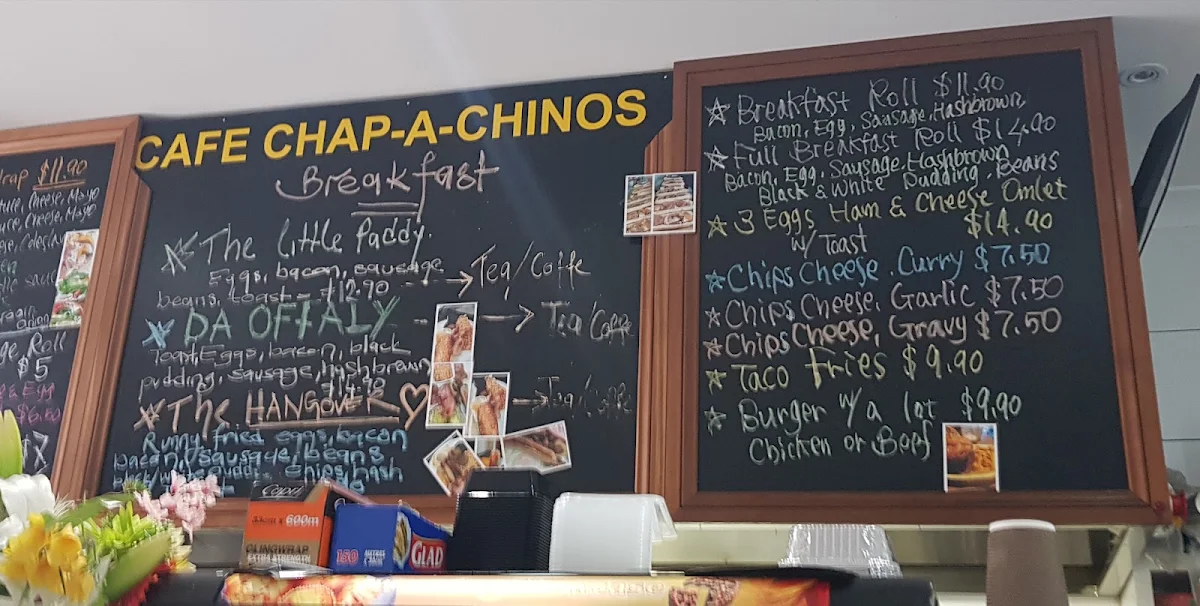 $11.90
Cheese, Mayo
Cheese, Mayo
Roll
$5
& Egg
$6.50
$7
CAFE CHAP-A-CHINOS
Breakfast
The Little Paddy.
Eggs, bacon, sausage
beans, toast - $12.90 → Tea/Coffe
DA OFFALY → Tea/Coffe
Toast, Eggs, bacon, black
pudding, sausage, hashbrown
$14.90
The HANGOVER → Tea/Coffe
Runny fried eggs, bacon
bacon, sausage, beans
chips, hash
Breakfast Roll $11.90
Bacon, Egg, Sausage, Hashbrown
Full Breakfast Roll $14.90
Bacon, Egg, Sausage, Hashbrown
Black & White Pudding, Beans
3 Eggs Ham & Cheese Omlet
w/ Toast $14.90
Chips Cheese, Curry $7.50
Chips Cheese, Garlic $7.50
Chips Cheese, Gravy $7.50
Taco Fries $9.90
Burger w/ a lot $9.90
Chicken or Beef
Capri
33cm x 600m
CLINGWRAP
EXTRA STRENGTH
150 METRES
GLAD